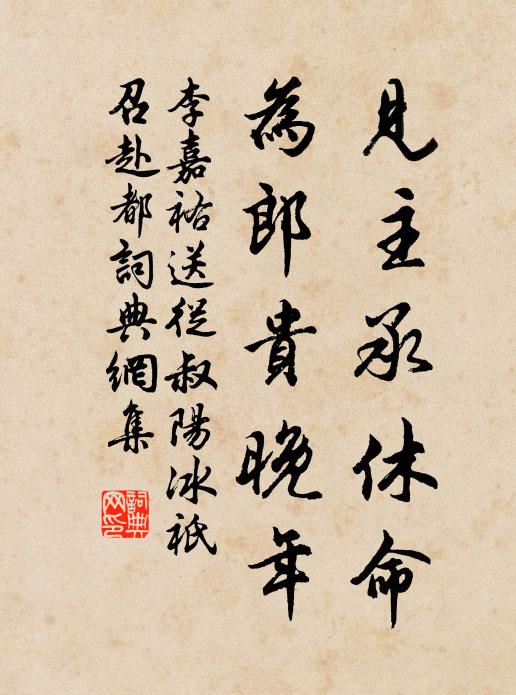 見主承休命
為郎貴晚年
李嘉祐送從叔陽冰祇
召赴都詞典網集
詞典
网印